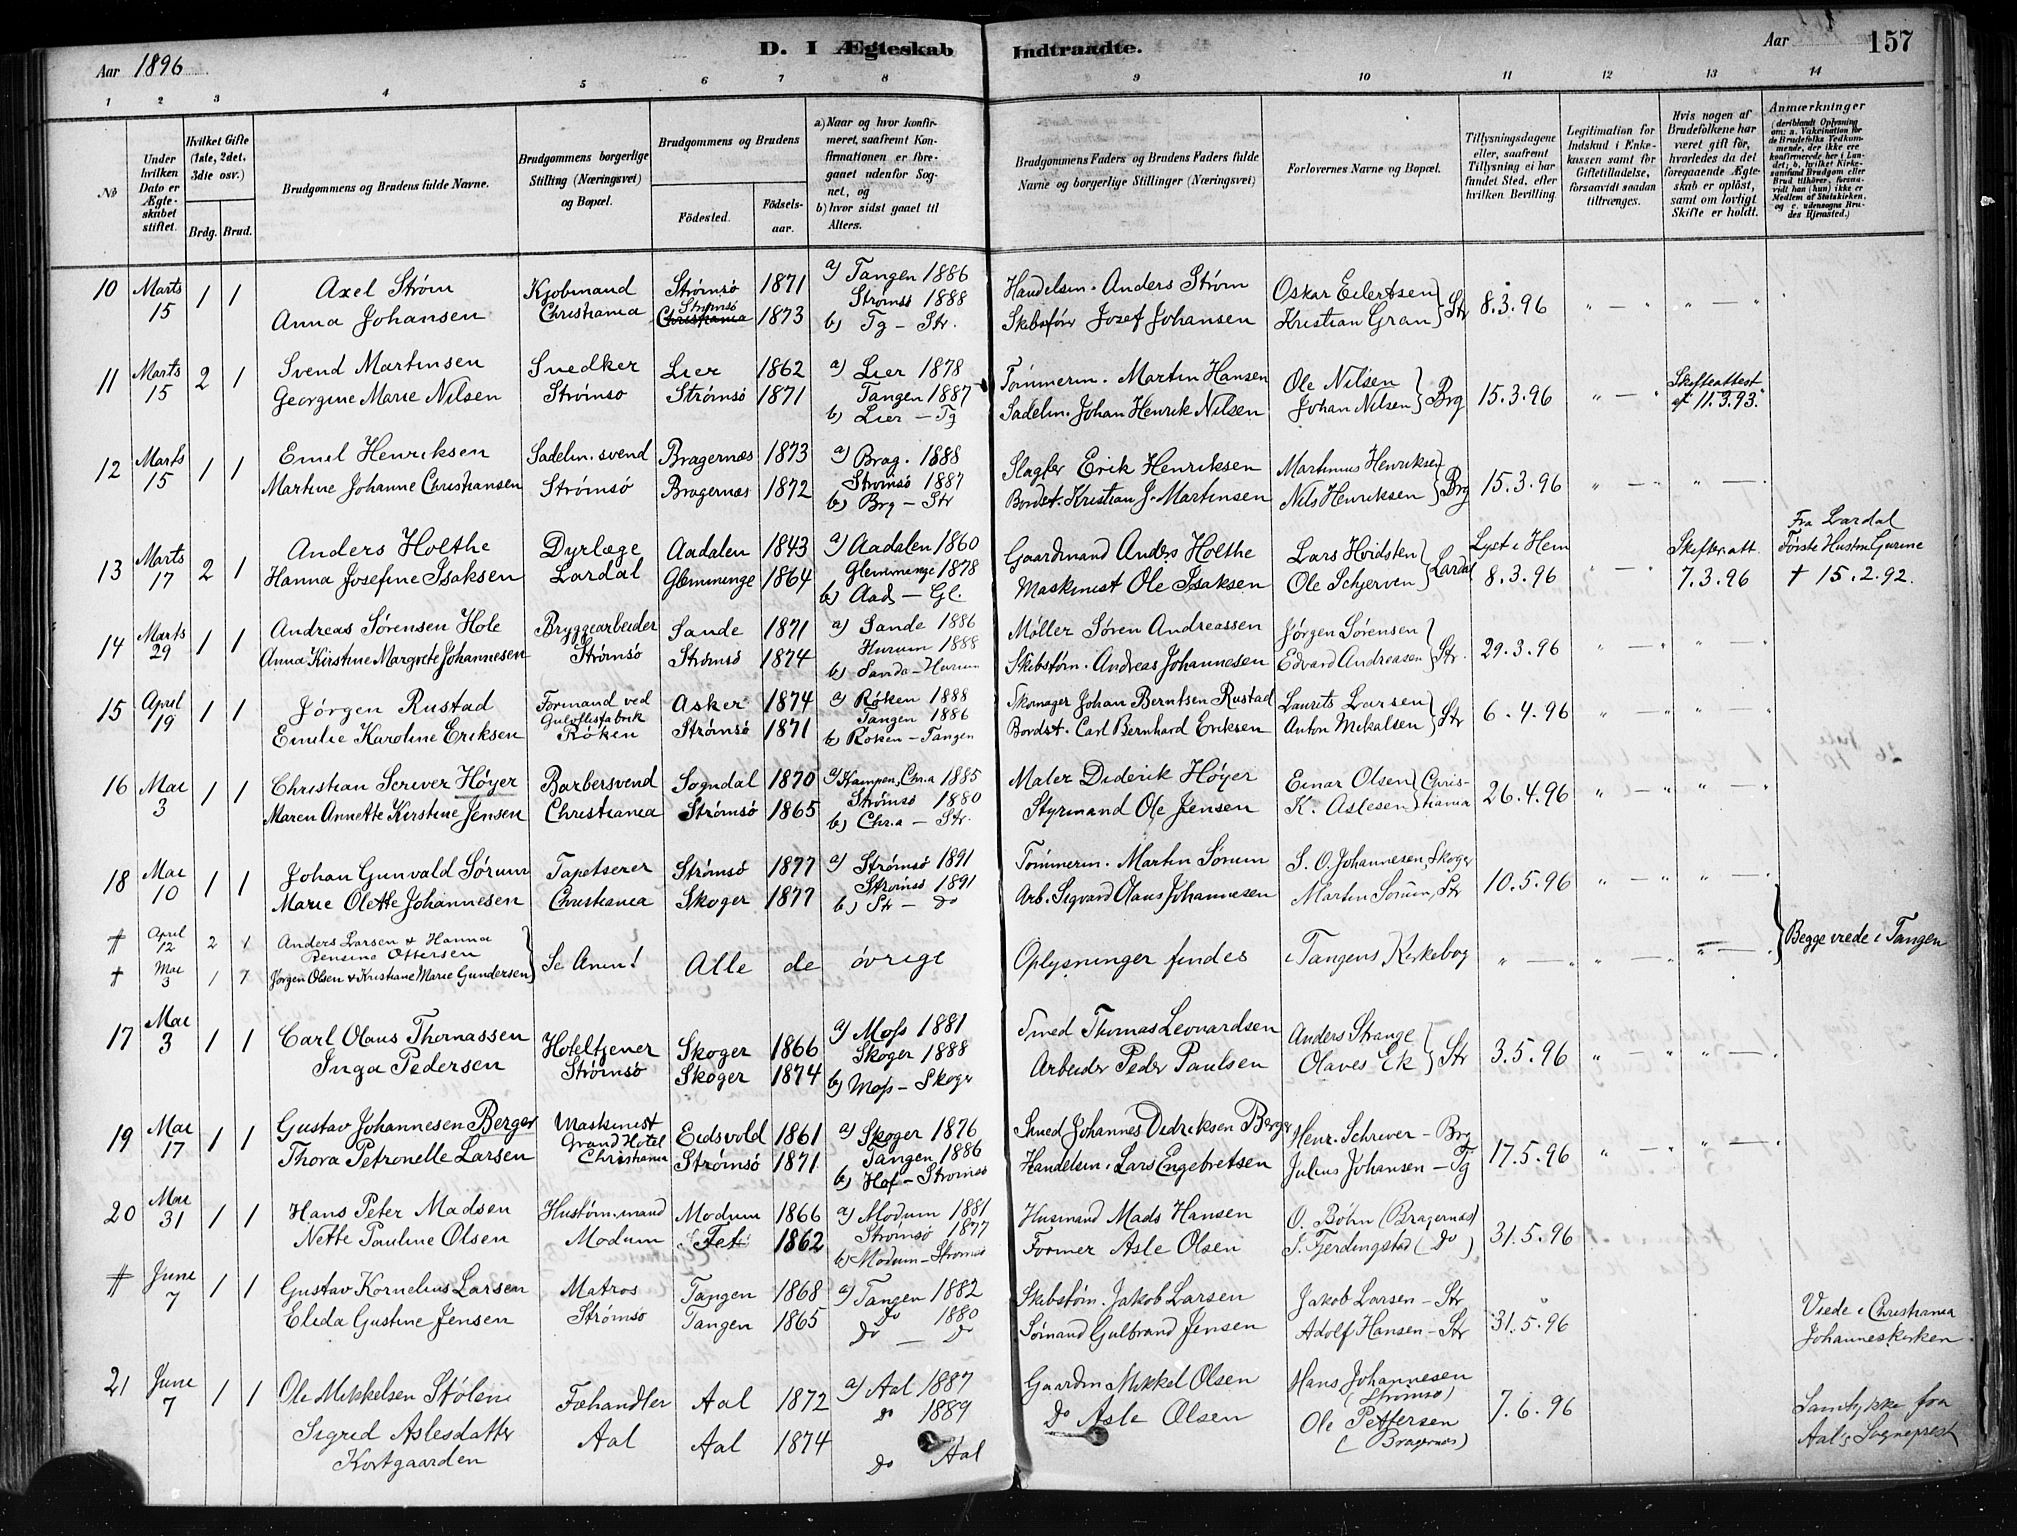 Aar 1896
D. I Ægteskab Indtraadte.
Aar 157
1 2 3 4 5 6 7 8 9 10 11 12 13 14
No
Under hvilken Dato er Ægteskabet stiftet.
Hvilket Gifte (1ste, 2det, 3die osv.)
Brdg. Brud.
Brudgommens og Brudens fulde Navne.
Brudgommens borgerlige Stilling (Næringsvei) og Bopæl.
Brudgommens og Brudens
Födested. Födselsaar.
a) Naar og hvor konfirmeret, saafremt Konfirmationen er foregaaet udenfor Sognet, og
b) hvor sidst gaaet til Alters.
Brudgommens Faders og Brudens Faders fulde Navne og borgerlige Stillinger (Næringsvei)
Forlovernes Navne og Bopæl.
Tillysningsdagene eller, saafremt Tillysning ei har fundet Sted, efter hvilken Bevilling.
Legitimation for Indskud i Enkekassen samt for Giftetilladelse, forsaavidt saadan tiltrænges.
Hvis nogen af Brudefolkene har været gift før, hvorledes da det foregaaende Ægteskab er opløst, samt om lovligt Skifte er holdt.
Anmærkninger (deriblandt Oplysning om: a. Vakcination for de Brudefolks Vedkommende, der ikke ere konfirmerede her i Landet; b. hvilket Kirkesamfund Brudgom eller Brud tilhører, forsaavidt han (hun) ikke er Medlem af Statskirken, og c. udensogns Brudes Hjemsted.)
10 Marts 15 1 1 Axel Strøm Kjøbmand Strømsö 1871 a) Tangen 1886 Handelsm. Anders Strøm Oskar Eilertsen Str 8.3.96 " — " " — "
Anna Johansen Christiania Strømsö Christiania 1873 Strømsö 1888 b) Tg — Str. Skibsför Jozef Johansen Kristian Gran
11 Marts 15 2 1 Svend Martinsen Snedker Lier 1862 a) Lier 1878 Tømmerm. Martin Hansen Ole Nilsen Brg 15.3.96 " — " Skifteattest af 11.3.93.
Georgine Marie Nilsen Strømsö Strømsö 1871 Tangen 1887 b) Lier — Tg Sadelm. Johan Henrik Nilsen Johan Nilsen
12 Marts 15 1 1 Emil Henriksen Sadelm. svend Bragernæs 1873 a) Brag. 1888 Slagter Erik Henriksen Martinius Henriksen Brg 15.3.96 " — " " — "
Martine Johanne Christiansen Strømsö Bragernæs 1872 Strømsö 1887 b) Brg — Str Bordst. Kristian J. Martinsen Nils Henriksen
13 Marts 17 2 1 Anders Holthe Dyrlæge Aadalen 1843 a) Aadalen 1860 Gaardmand Anders Holthe Lars Hvidsten Lardal Lyst i Hem 8.3.96 " — " Skifteratt. 7.3.96 Fra Lardal Første Hustru Gurine † 15.2.92.
Hanna Josefine Isaksen Lardal Glemminge 1864 Glemminge 1878 b) Aad — Gl. Maskinist Ole Isaksen Ole Schjerven
14 Marts 29 1 1 Andreas Sörensen Hole Bryggearbeider Sande 1871 a) Sande 1886 Møller Søren Andreassen Jørgen Sørensen Str. 29.3.96 " — " " — "
Anna Kirstine Margrete Johannesen Strømsö Strømsö 1874 Hurum 1888 b) Sande — Hurum Skibstøm. Andreas Johannesen Edvard Andreasen
15 April 19 1 1 Jörgen Rustad Formand ved Asker 1874 a) Røken 1888 Skomager Johan Berntsen Rustad Laurits Larsen Str 6.4.96 " — " " — "
Emilie Karoline Eriksen Gulvflisfabrik Røken Strømsö 1871 Tangen 1886 b) Røken — Tangen Bordst. Carl Bernhard Eriksen Anton Mikalsen
16 Mai 3 1 1 Christian Scriver Høyer Barbersvend Sogndal 1870 a) Kampen, Chr.a 1885 Maler Diderik Høyer Einar Olsen Christiania 26.4.96 " — " " — "
Maren Annette Kirstine Jensen Christiania Strømsö 1865 Strømsö 1880 b) Chr.a — Str. Styrmand Ole Jensen K. Aslesen
18 Mai 10 1 1 Johan Gunvald Sørum Tapetserer Strømsö 1877 a) Strømsö 1891 Tømmerm. Martin Sørum S. O. Johannesen, Skoger 10.5.96 " — " " — "
Marie Olette Johannesen Christiania Skoger 1877 Strømsö 1891 b) Str — Do Arb. Sigvard Olaus Johannesen Martin Sörum, Str
# April 12 2 1 Anders Larsen & Hanna Rensine Ottersen Se Anm! Alle de øvrige Oplysninger findes i Tangens Kirkebog " — " " — " " — " Begge viede i Tangen
# Mai 3 1 1 Jørgen Olsen & Kristiane Marie Gundersen
17 Mai 3 1 1 Carl Olaus Thomassen Hoteltjener Skoger 1866 a) Moss 1881 Smed Thomas Leonardsen Anders Strange Str 3.5.96 " — " " — "
Inga Pedersen Strømsö Skoger 1874 Skoger 1888 b) Moss — Skoger Arbeider Peder Paulsen Olaves Ek
19 Mai 17 1 1 Gustav Johannesen Berger Maskinist Eidsvold 1861 a) Skoger 1876 Smed Johannes Didriksen Berger Henr. Schriver — Brg 17.5.96 " — " " — "
Thora Petronelle Larsen Grand Hotel Christiania Strømsö 1871 Tangen 1886 b) Hof — Strømsö Handelsm. Lars Engebretsen Julius Johansen — Tg
20 Mai 31 1 1 Hans Peter Madsen Hustøm.mand Modum 1866 a) Modum 1881 Husmand Mads Hansen O. Bøhn (Bragernæs) 31.5.96
Nette Pauline Olsen Modum Fet 1862 Strømsö 1877 b) Modum — Strømsö Former Asle Olsen T. Fjerdingstad (Do)
# Juni 7 1 1 Gustav Kornelius Larsen Matros Tangen 1868 a) Tangen 1882 Skibstøm. Jakob Larsen Jakob Larsen — Str 31.5.96 Viede i Christiania Johanneskirken
Elida Gustine Jensen Strømsö Tangen 1865 Do 1880 Do — Do Sømand Gulbrand Jensen Adolf Hansen — Str
21 Juni 7 1 1 Ole Mikkelsen Stølen Fæhandler Aal 1872 a) Aal 1887 Gaardm Mikkel Olsen Hans Johannesen (Strømsö) 7.6.96 Samtykke fra Aal's Sogneprest
Sigrid Aslesdatter Kortgaarden Aal Aal 1874 Do 1889 Do Aal Do Asle Olsen Ole Pettersen (Bragernæs)